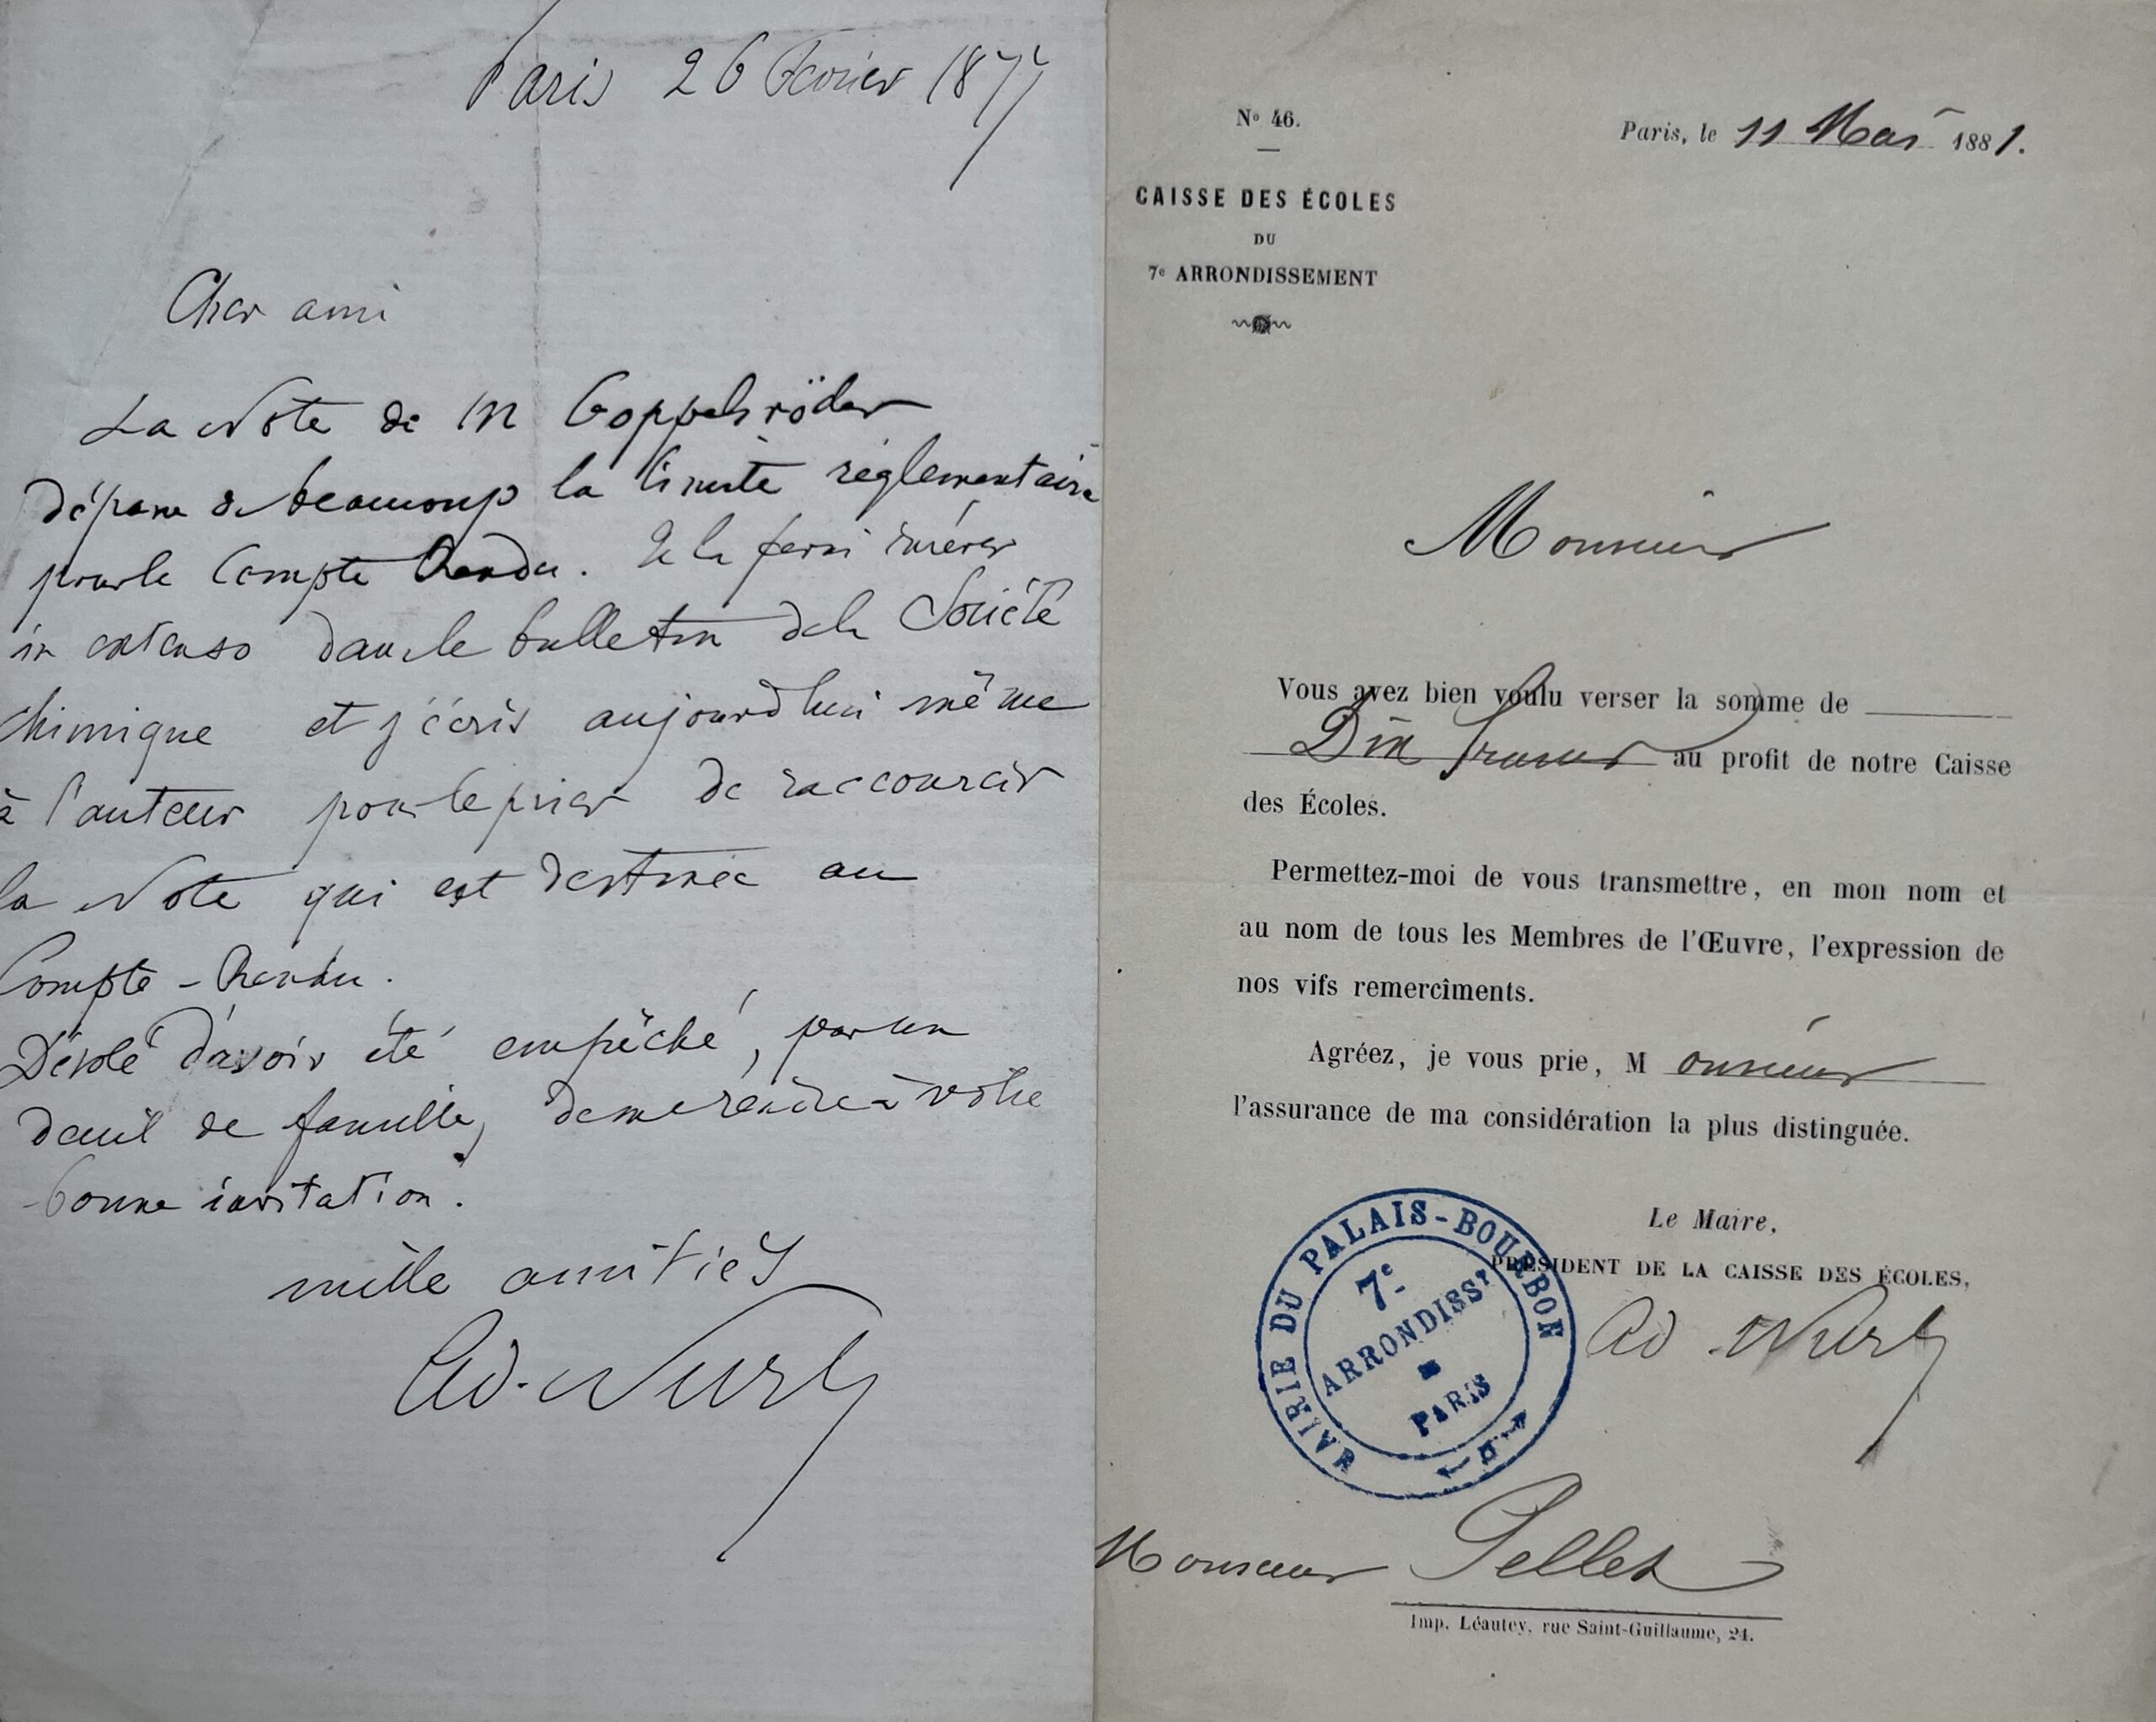 Paris 26 Février 1877
Cher ami
La Note de M Goppelsröder
dépasse de beaucoup la limite réglementaire
pour le Compte Rendu. Je la ferai insérer
in extenso dans le bulletin de la Société
chimique et j'écris aujourd'hui même
à l'auteur pour le prier de raccourcir
la Note qui est destinée au
Compte-Rendu.
Désolé d'avoir été empêché, par un
deuil de famille, de me rendre à votre
bonne invitation.
mille amitiés
Ad. Wurtz
No 46.
Paris, le 11 Mai 1881.
CAISSE DES ÉCOLES
DU
7e ARRONDISSEMENT
Monsieur
Vous avez bien voulu verser la somme de
Dix francs au profit de notre Caisse
des Écoles.
Permettez-moi de vous transmettre, en mon nom et
au nom de tous les Membres de l'Œuvre, l'expression de
nos vifs remercîments.
Agréez, je vous prie, Monsieur
l'assurance de ma considération la plus distinguée.
Le Maire,
PRÉSIDENT DE LA CAISSE DES ÉCOLES,
Ad. Wurtz
MAIRIE DU PALAIS-BOURBON
7e
ARRONDISST
PARIS
Monsieur Pellet
Imp. Léautey, rue Saint-Guillaume, 24.